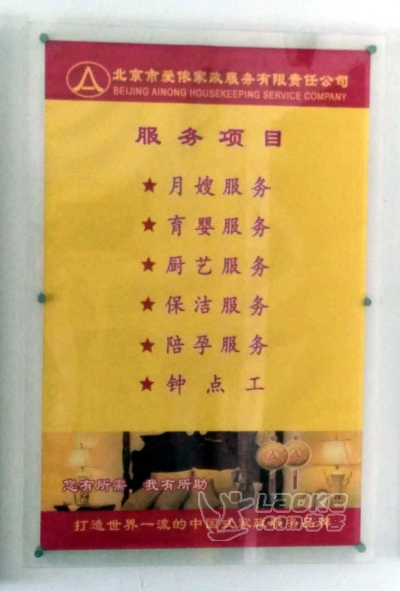 北京市爱侬家政服务有限责任公司
BEIJING AINONG HOUSEKEEPING SERVICE COMPANY
服务项目
★月嫂服务
★育婴服务
★厨艺服务
★保洁服务
★陪孕服务
★钟点工
您有所需 我有所助
打造世界一流的中国式家政服务品牌
Laoke
.com